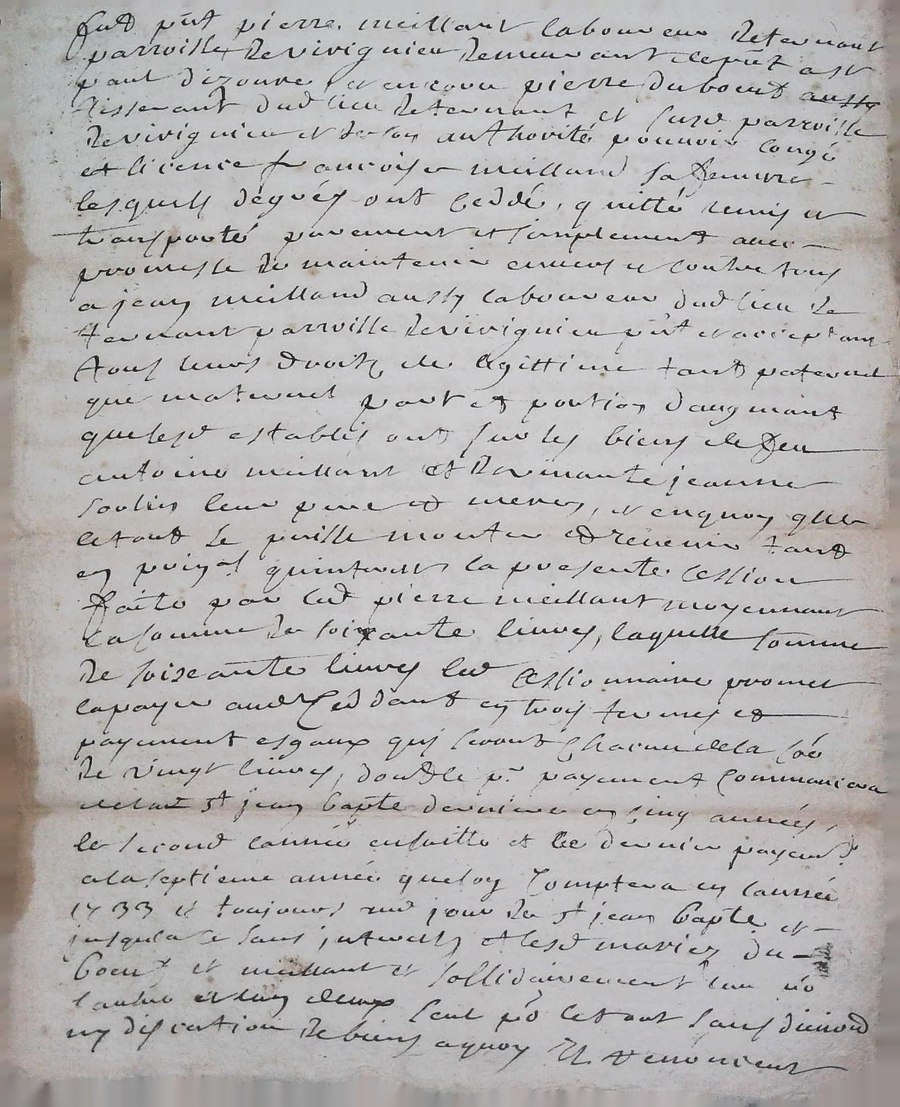 fut pnt pierre meillant laboureur de ternant
parroisse de vivignieu demeurant
et encore pierre duboeuf aussy
tisserant dud lieu de ternant et susd parroisse
de vivignieu et de son authorité pouvoir congé
et licence francoise meilland sa femme
lesquels degrés ont ceddé, quitté remis et
transporté purement et simplement avec
promesse de maintenir envers et contre tous
a jean meilland aussy laboureur dud lieu de
ternant parroisse de vivignieu pnt et acceptant
tous leurs droits de legittime tant paternel
que maternel part et portion daugmant
que lesd establis ont sur les biens de feu
antoine meillant et vivante jeanne
soulier leur pere et meres, et enquoy que
le tout se puisse monter et revenir tant
en prinal quinterets la presente cession
faite par led pierre meillant moyennant
la somme de soixante livres, laquelle somme
de soixante livres led cessionnaire promet
la payer aud ceddant en trois termes et
payement esgaux qui seront chacun de la sôe
de vingt livres, dont le pr payement commancera
st jean bapte derniere en cinq années,
le second lannée ensuitte et le dernier payemt
a la septieme année quelon comptera en lannée
1733 et toujours aud jour de st jean bapte et
jusqua ce sans interests et lesd mariez du-
boeuf et meillant et sollidairement lun pô
lautre et lun deux seul pô le tout sans division
ny discution de biens aquoy ils renoncent